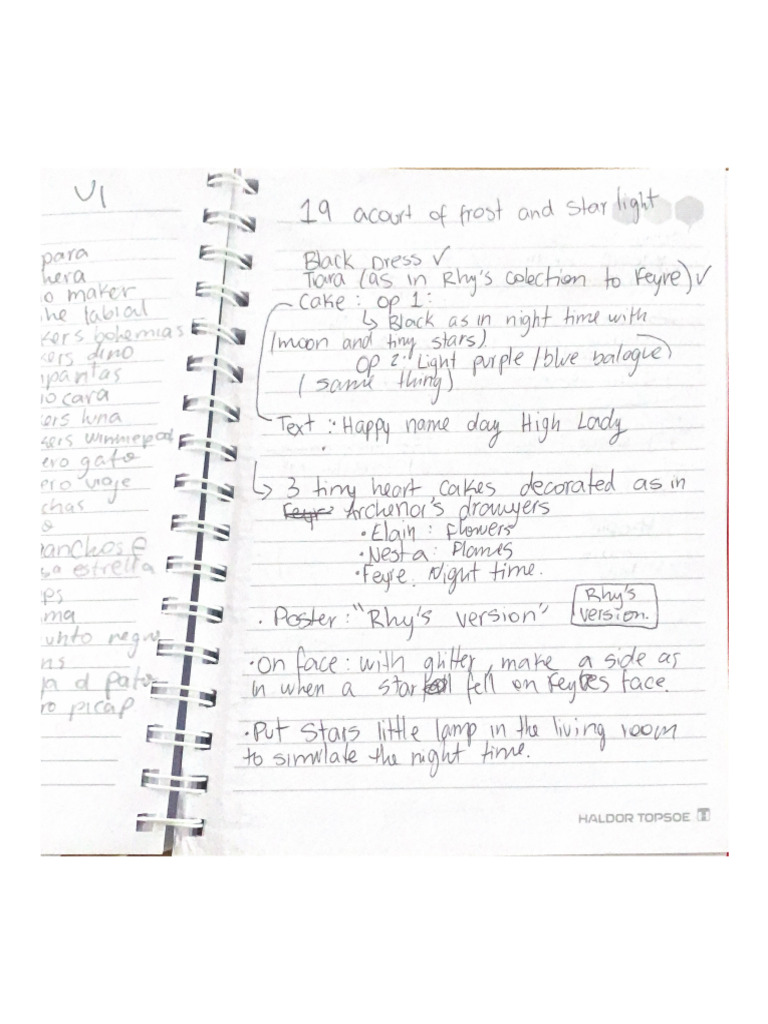 VI
para
hera
o maker
he labial
kers bohemias
kers dino
pantas
o cara
kers luna
kers winniepod
ero gato
ero viaje
chas
o
anchos
sa estrella
ps
ma
unto negro
ns
a d pato
ro picap
19 acourt of frost and star light
Black Dress ✓
Tiara (as in Rhy's colection to Feyre) ✓
Cake : Op 1:
↳ Black as in night time with
(moon and tiny stars)
Op 2: Light purple /blue balague
( same thing)
Text : Happy name day High Lady
↳ 3 tiny heart cakes decorated as in
Feyr Archenor's drawyers
• Elain : Flowers
• Nesta : Flames
• Feyre. Night time.
• Poster: "Rhy's version"
Rhy's
version.
• On face : with glitter, make a side as
in when a star fell on Feyres face.
• Put stars little lamp in the living room
to simulate the night time.
HALDOR TOPSOE